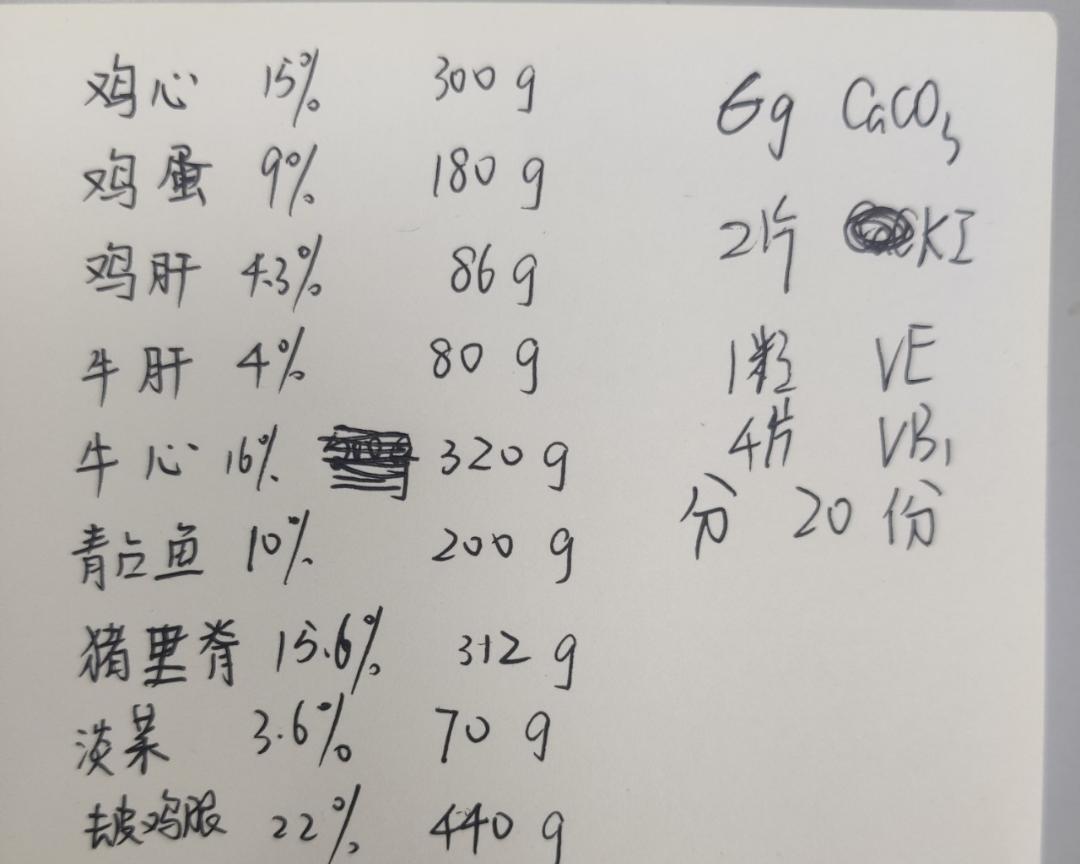 鸡心 15% 300g
鸡蛋 9% 180g
鸡肝 4.3% 86g
牛肝 4% 80g
牛心 16% 320g
青占鱼 10% 200g
猪里脊 15.6% 312g
淡菜 3.6% 70g
去皮鸡腿 22% 440g
6g CaCO₃
2片 KI
1粒 VE
4片 VB₁
分 20 份